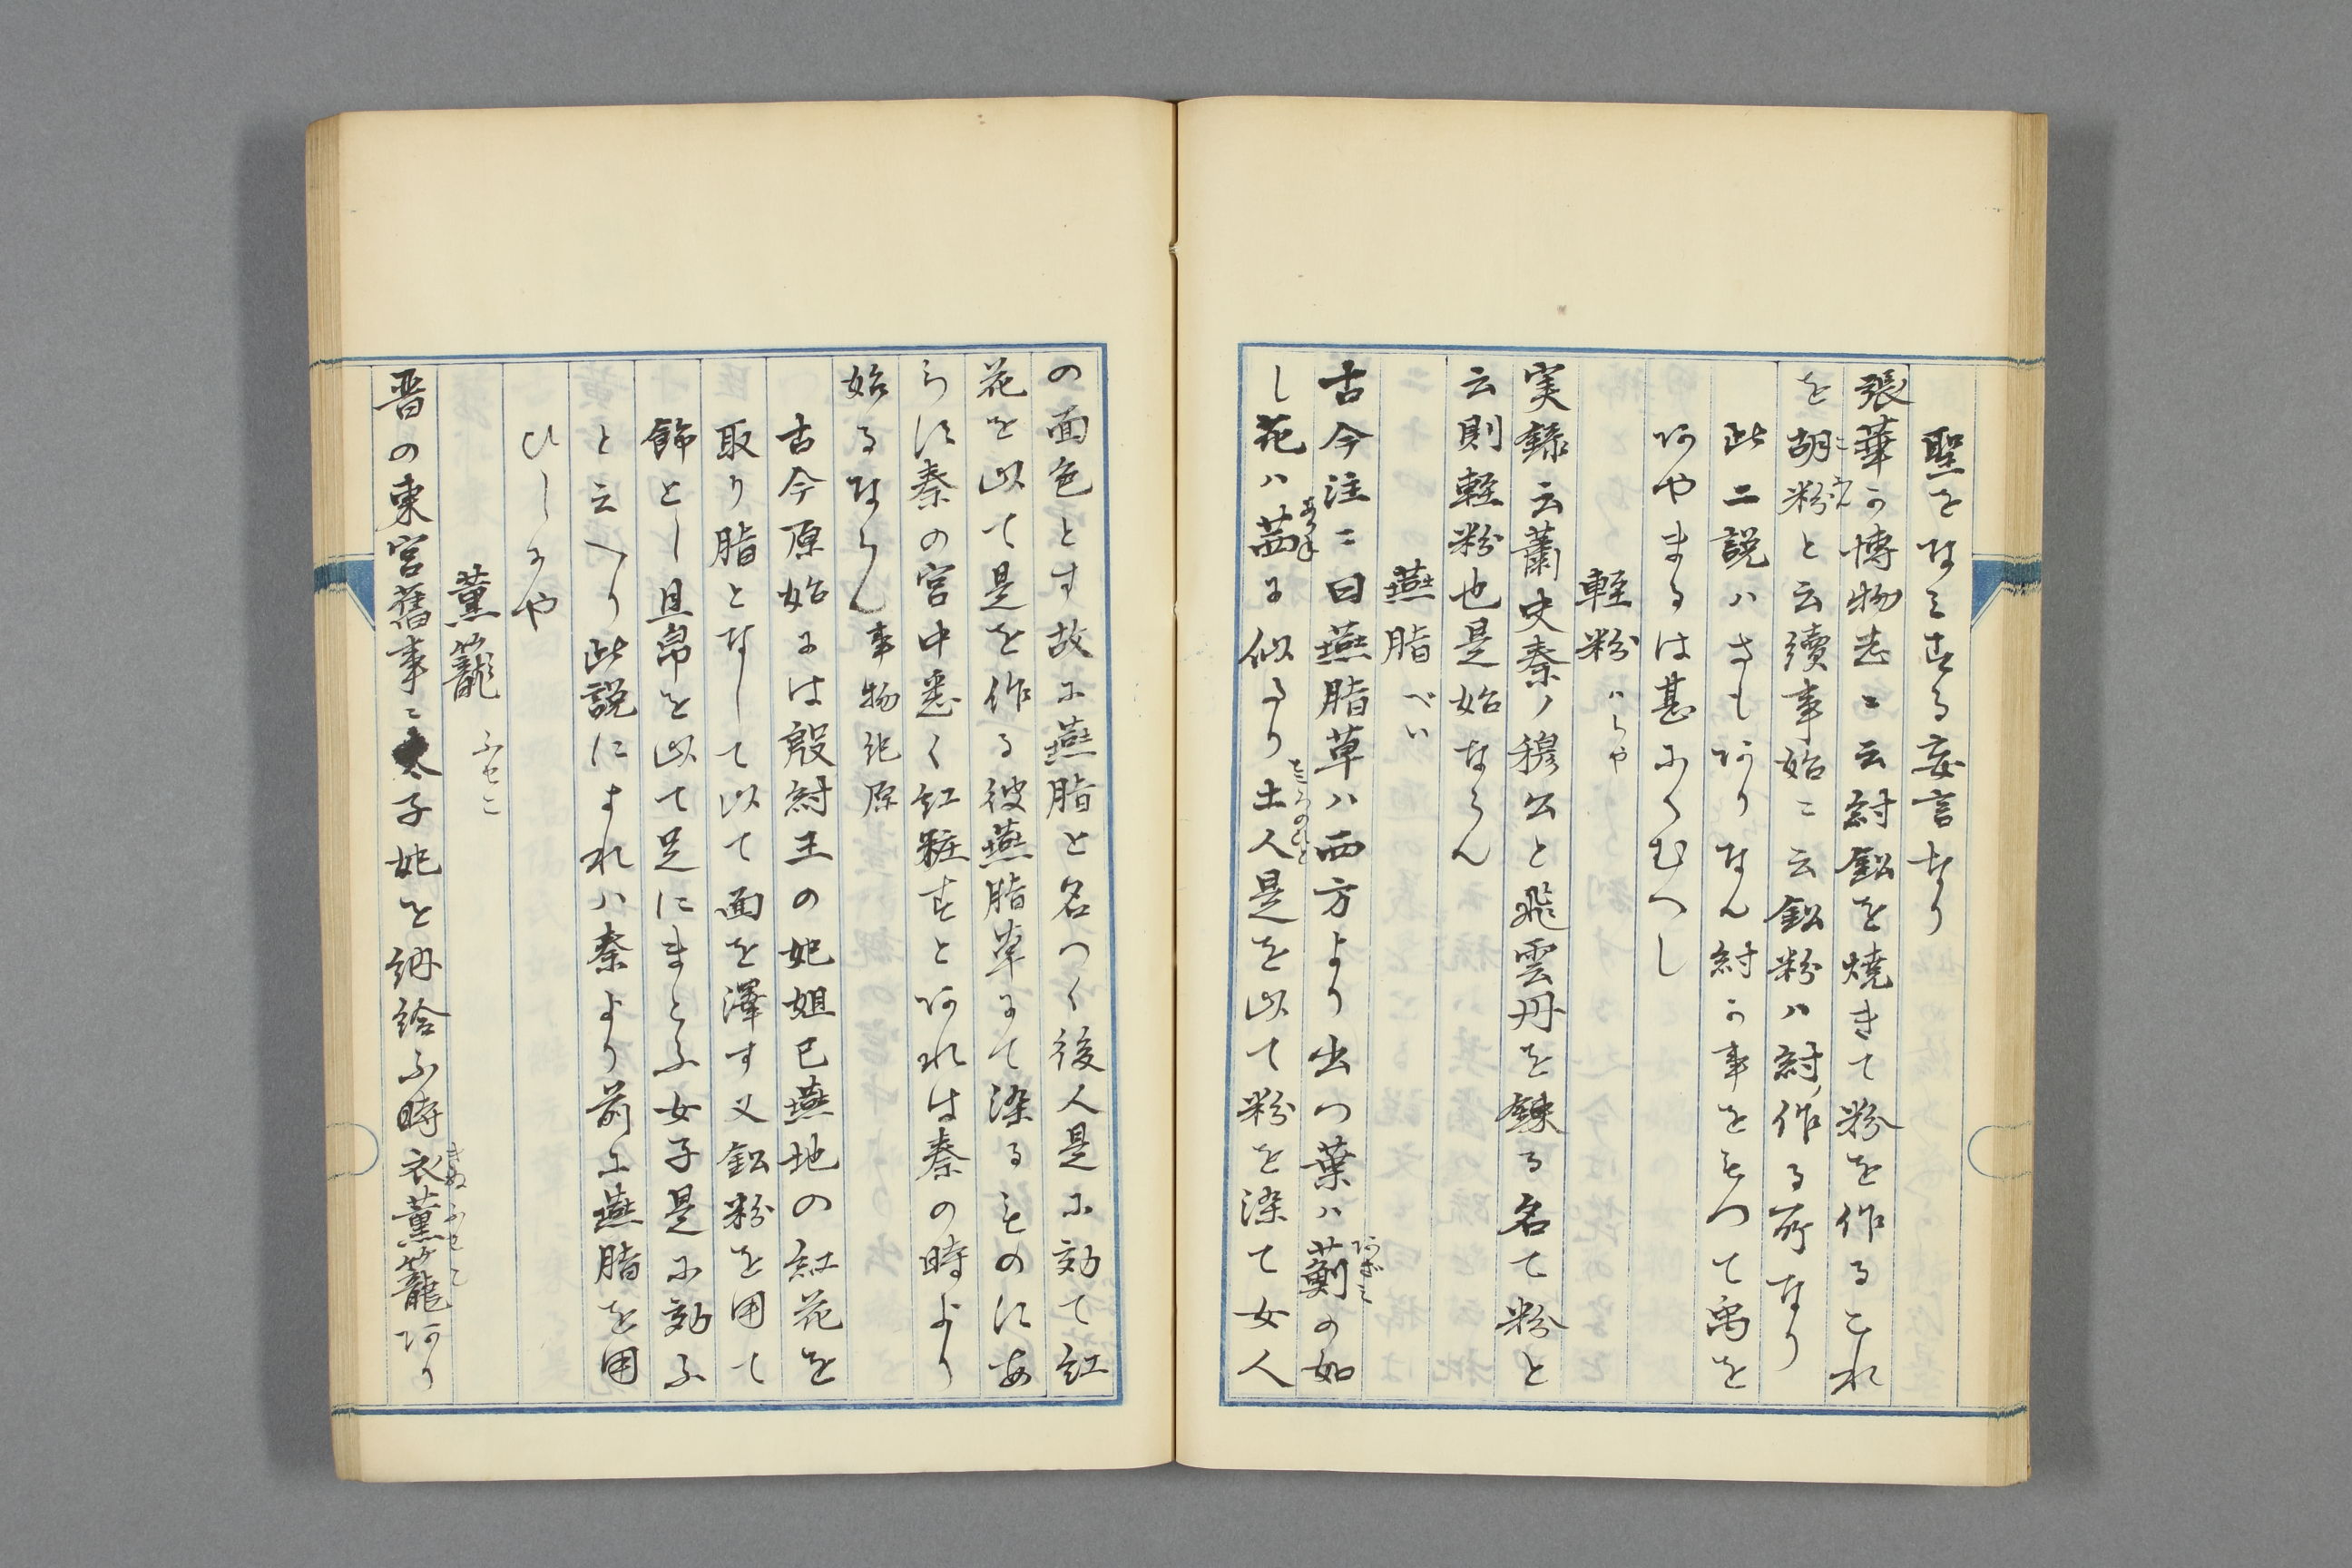 聖をなみする妄言なり
張華か博物志ニ云紂鉛を焼きて粉を作るこれ
を胡粉と云續事始ニ云鉛粉ハ紂ノ作る所なり
此二説ハさも阿りなん紂か事をもつて禹を
阿やまるは甚にくむへし
軽粉 ハらや
実録云蕭史秦ノ穆公と飛雲丹を錬る名て粉と
云則軽粉也是始ならん
燕脂 べい
古今注ニ曰燕脂草ハ西方より出つ葉ハ薊の如
し花ハ茜に似たり土人是を以て粉を染て女人
の面色とす故に燕脂と名つく後人是に効て紅
花を以て是を作る彼燕脂草にて染るものにあ
らす秦の宮中悉く紅粧すと阿れは秦の時より
始るならん事物紀原
古今原始には殷紂王の妃妲己燕地の紅花を
取り脂となして以て面を澤す又鉛粉を用て
飾とし且帛を以て足にまとふ女子是に効ふ
と云へり此説によれハ秦より前に燕脂を用
ひしにや
薫籠 ふせこ
晋の東宮舊事ニ太子妃を納給ふ時衣薫籠阿り